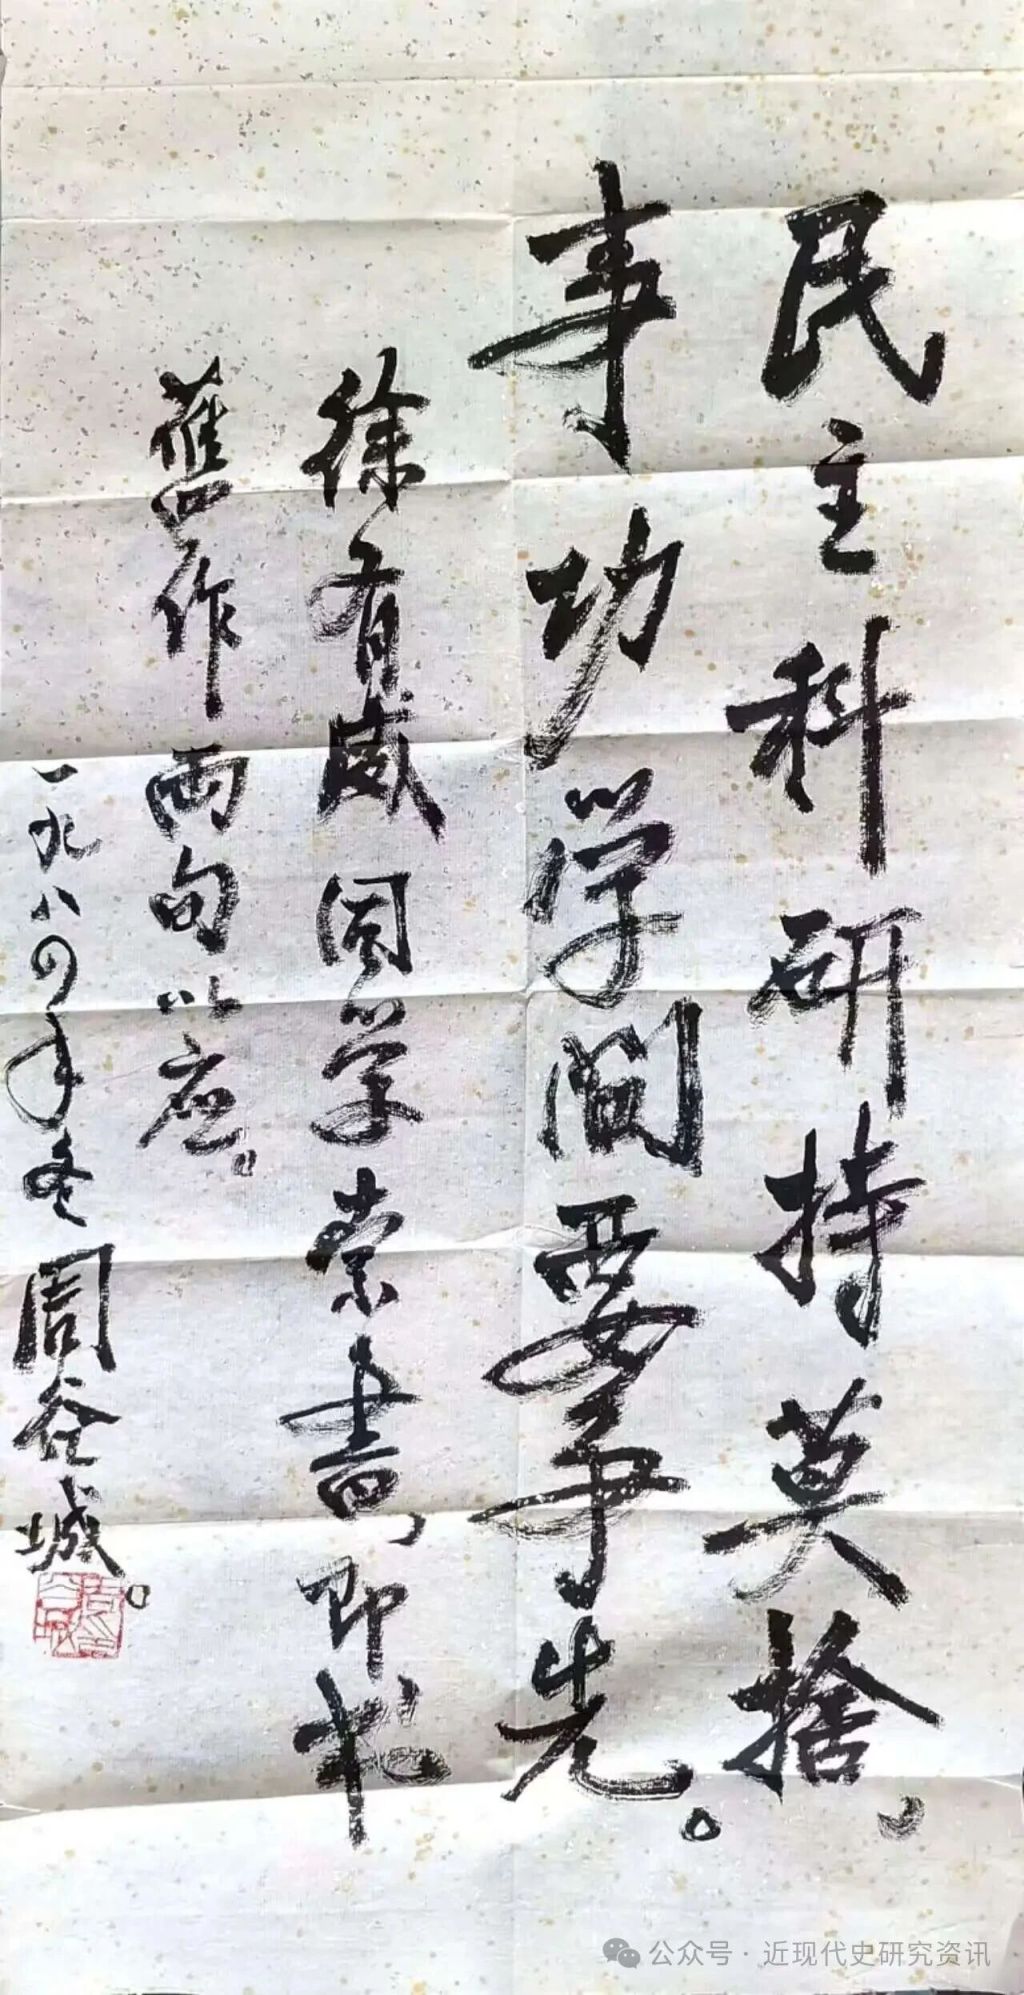 民主科研持莫捨，
事功学問要争先。
徐有威同学索書，即抄
舊作両句以应。
一九八四年冬 周谷城。
公众号·近现代史研究资讯